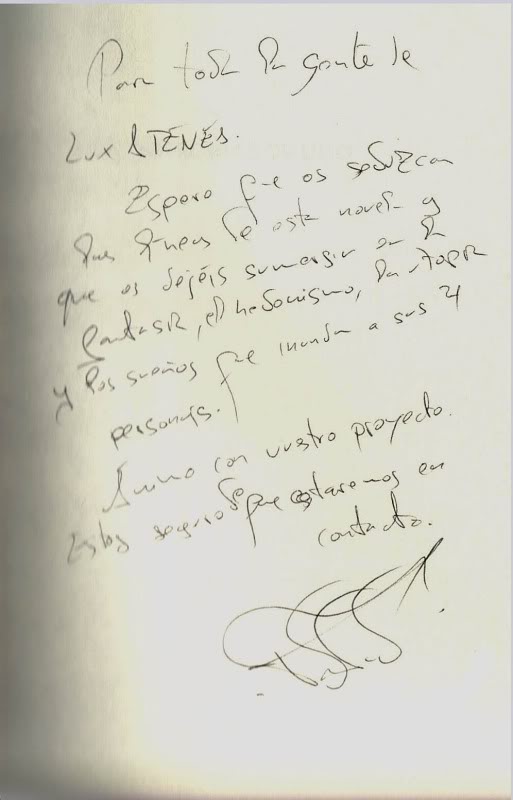 Para toda la gente de
Lux ATENEA.
Espero que os seduzcan
las líneas de esta novela y
que os dejéis sumergir en la
fantasía, el hedonismo, la utopía
y los sueños que inundan a sus 4
personajes.
Ánimo con vuestro proyecto.
Estoy seguro de que estaremos en
contacto.